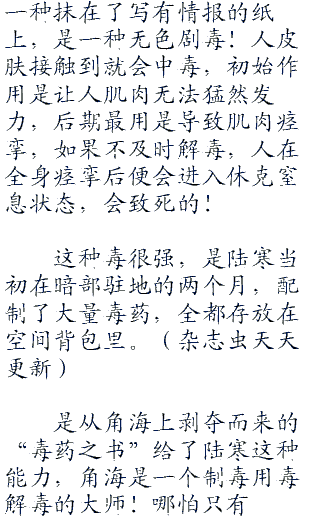 一种抹在了写有情报的纸
上，是一种无色剧毒！人皮
肤接触到就会中毒，初始作
用是让人肌肉无法猛然发
力，后期最用是导致肌肉痉
挛，如果不及时解毒，人在
全身痉挛后便会进入休克窒
息状态，会致死的！
这种毒很强，是陆寒当
初在暗部驻地的两个月，配
制了大量毒药，全都存放在
空间背包里。（杂志虫天天
更新）
是从角海上剥夺而来的
“毒药之书”给了陆寒这种
能力，角海是一个制毒用毒
解毒的大师！哪怕只有